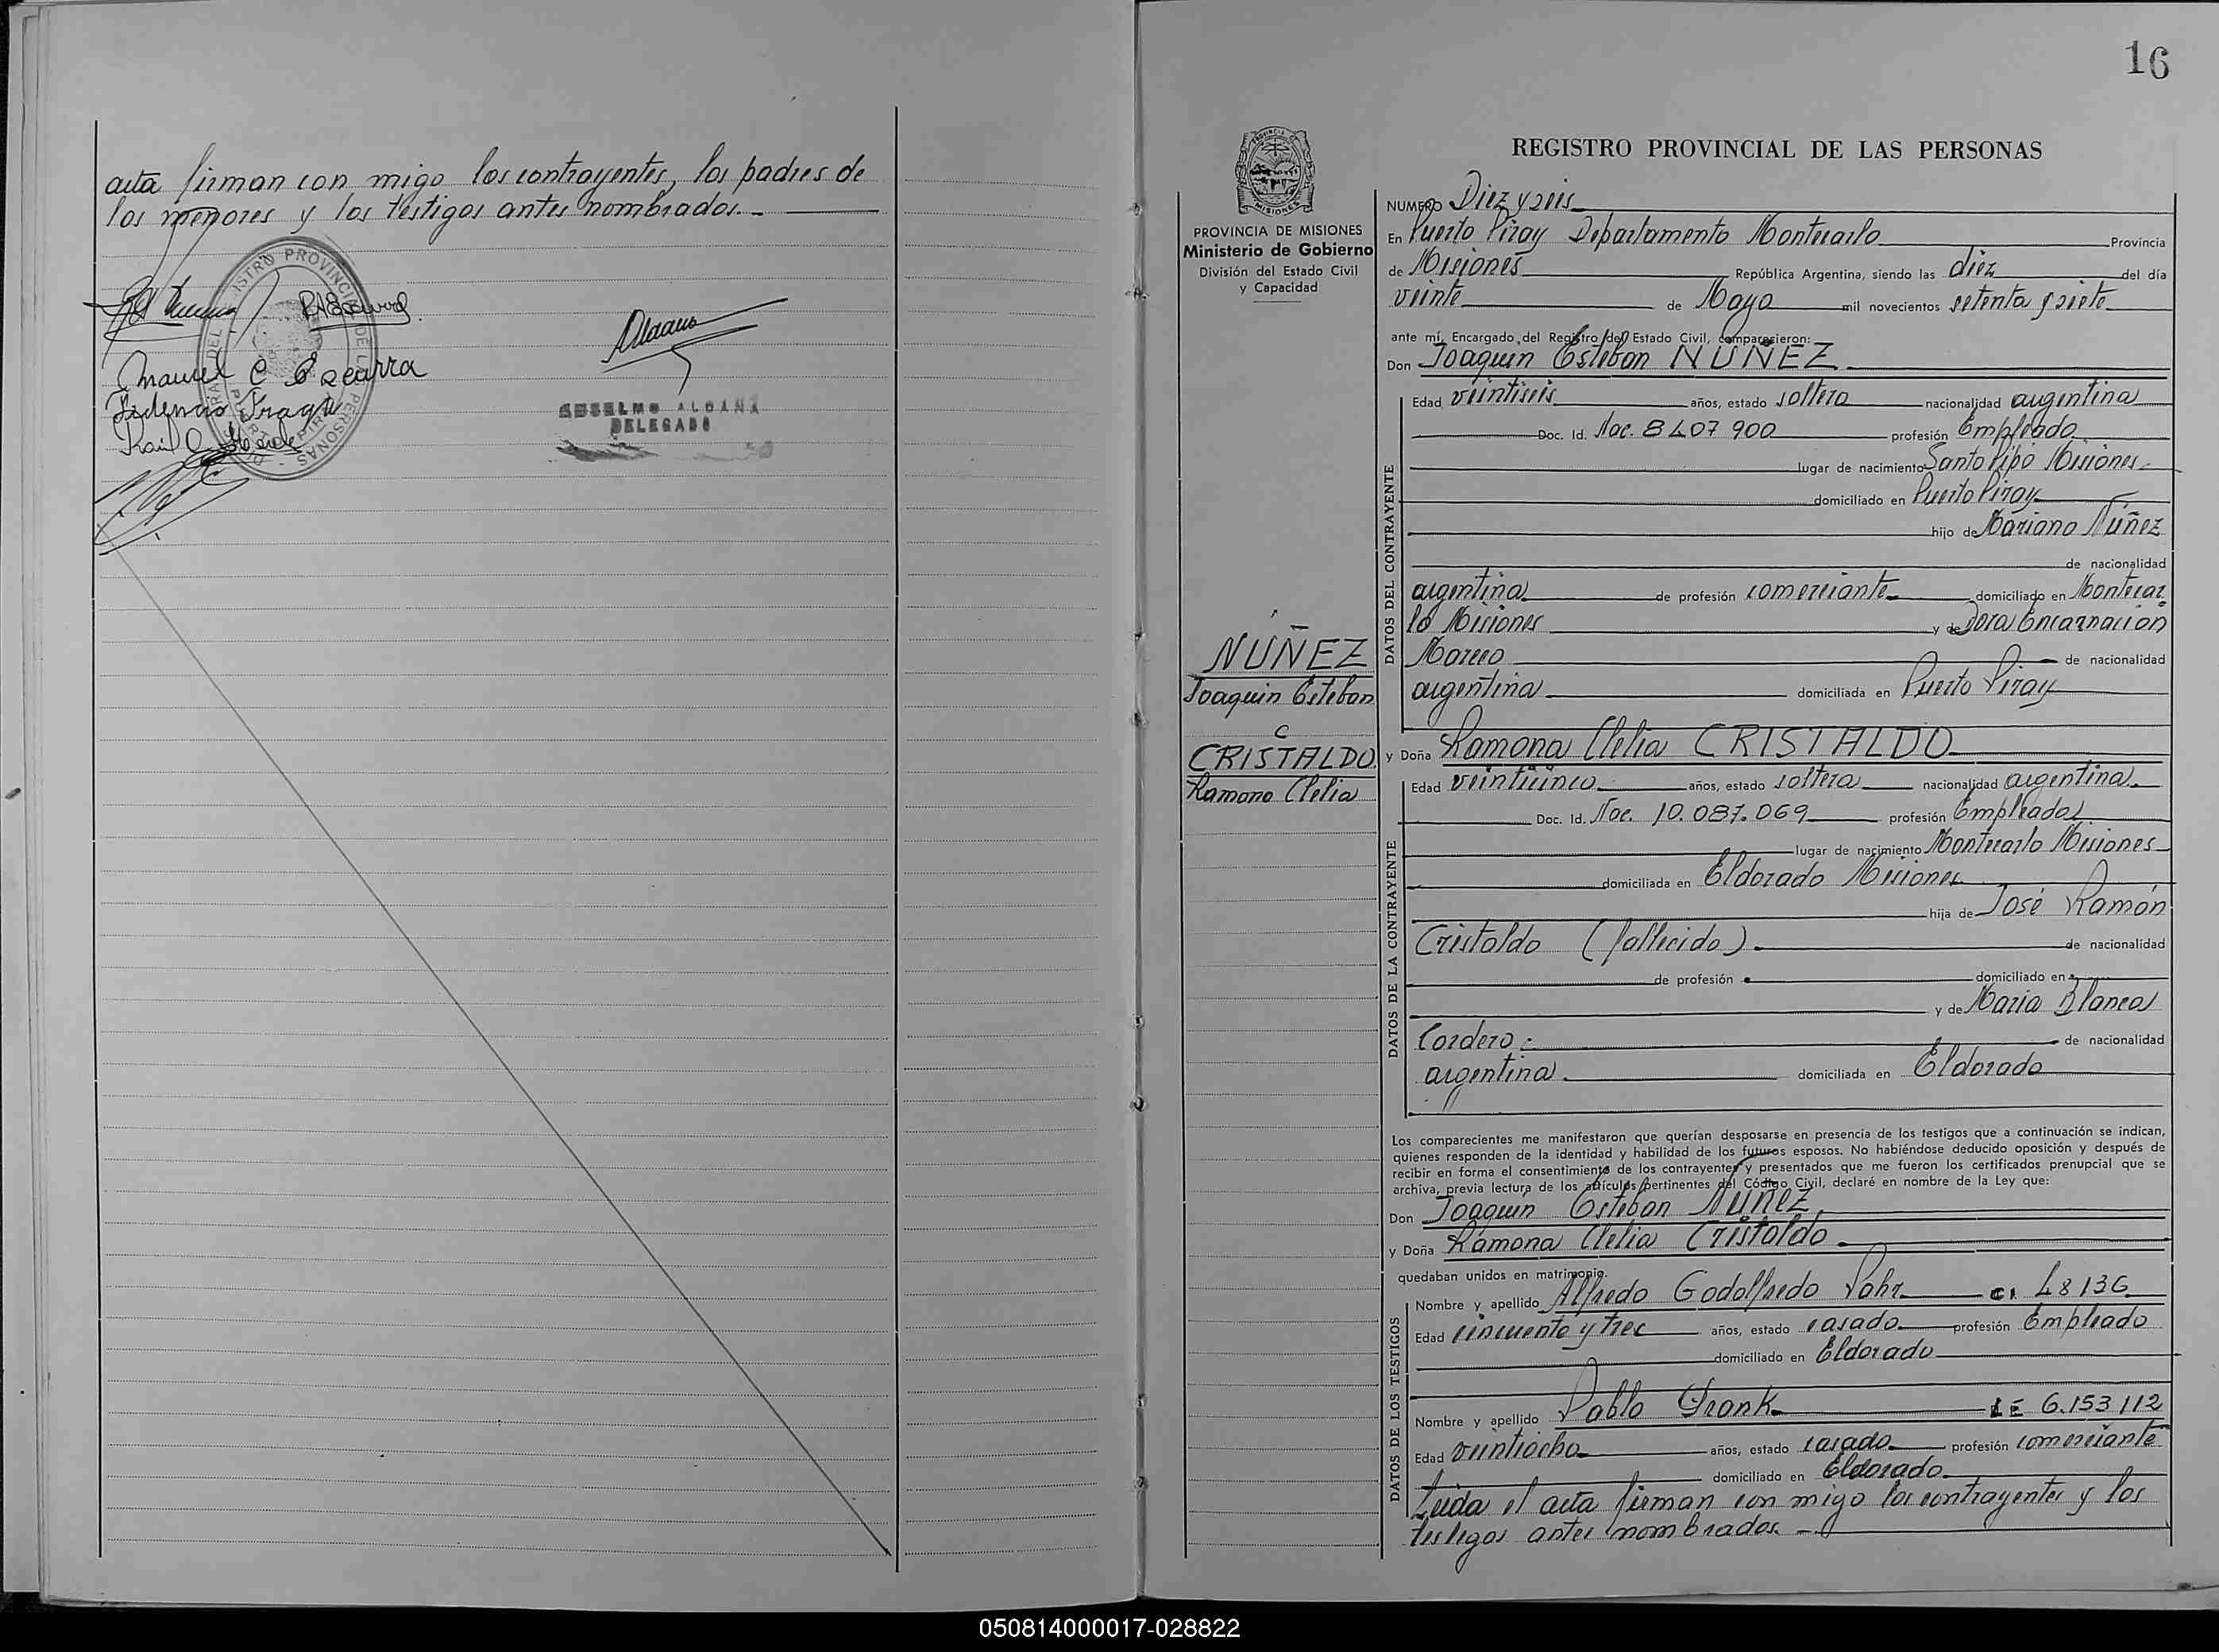 acta firman con migo los contrayentes, los padres de
los menores y los testigos antes nombrados.-
Manuel C Escurra
Fidencio Fraga
Raul O
ANSELMO ALDANA
DELEGADO
16
PROVINCIA DE MISIONES
Ministerio de Gobierno
División del Estado Civil
y Capacidad
NUÑEZ
Joaquin Esteban
c
CRISTALDO
Ramona Clelia
REGISTRO PROVINCIAL DE LAS PERSONAS
NUMERO Diez y seis
En Puerto Piray Departamento Montecarlo Provincia
de Misiones República Argentina, siendo las diez del día
veinte de Mayo mil novecientos setenta y siete
ante mí, Encargado del Registro del Estado Civil, comparecieron:
Don Joaquin Esteban NUÑEZ
Edad veintiseis años, estado soltero nacionalidad argentina
Doc. Id. Nac. 8407900 profesión Empleado
lugar de nacimiento Santo Pipo Misiones
domiciliado en Puerto Piray
DATOS DEL CONTRAYENTE
hijo de Mariano Núñez
de nacionalidad
argentina de profesión comerciante domiciliado en Montecar
lo Misiones y de Dora Encarnacion
de nacionalidad
argentina domiciliada en Puerto Piray
y Doña Ramona Clelia CRISTALDO
Edad veinticinco años, estado soltera nacionalidad argentina
Doc. Id. Nac. 10.087.069 profesión Empleada
lugar de nacimiento Montecarlo Misiones
domiciliada en Eldorado Misiones
DATOS DE LA CONTRAYENTE
hija de José Ramón
Cristaldo (fallecido) de nacionalidad
de profesión domiciliado en
y de Maria Blanca
Cordero de nacionalidad
argentina domiciliada en Eldorado
Los comparecientes me manifestaron que querían desposarse en presencia de los testigos que a continuación se indican,
quienes responden de la identidad y habilidad de los futuros esposos. No habiéndose deducido oposición y después de
recibir en forma el consentimiento de los contrayentes y presentados que me fueron los certificados prenupcial que se
archiva, previa lectura de los artículos pertinentes del Código Civil, declaré en nombre de la Ley que:
Don Joaquín Esteban NUÑEZ
y Doña Ramona Clelia Cristaldo
quedaban unidos en matrimonio.
Nombre y apellido Alfredo Godolfredo Pohr CI 48136
Edad cincuenta y tres años, estado casado profesión Empleado
domiciliado en Eldorado
DATOS DE LOS TESTIGOS
Nombre y apellido Pablo Frank LE 6.153112
Edad veintiocho años, estado casado profesión comerciante
domiciliado en Eldorado
Leida el acta firman con migo los contrayentes y los
testigos antes nombrados. -
050814000017-028822